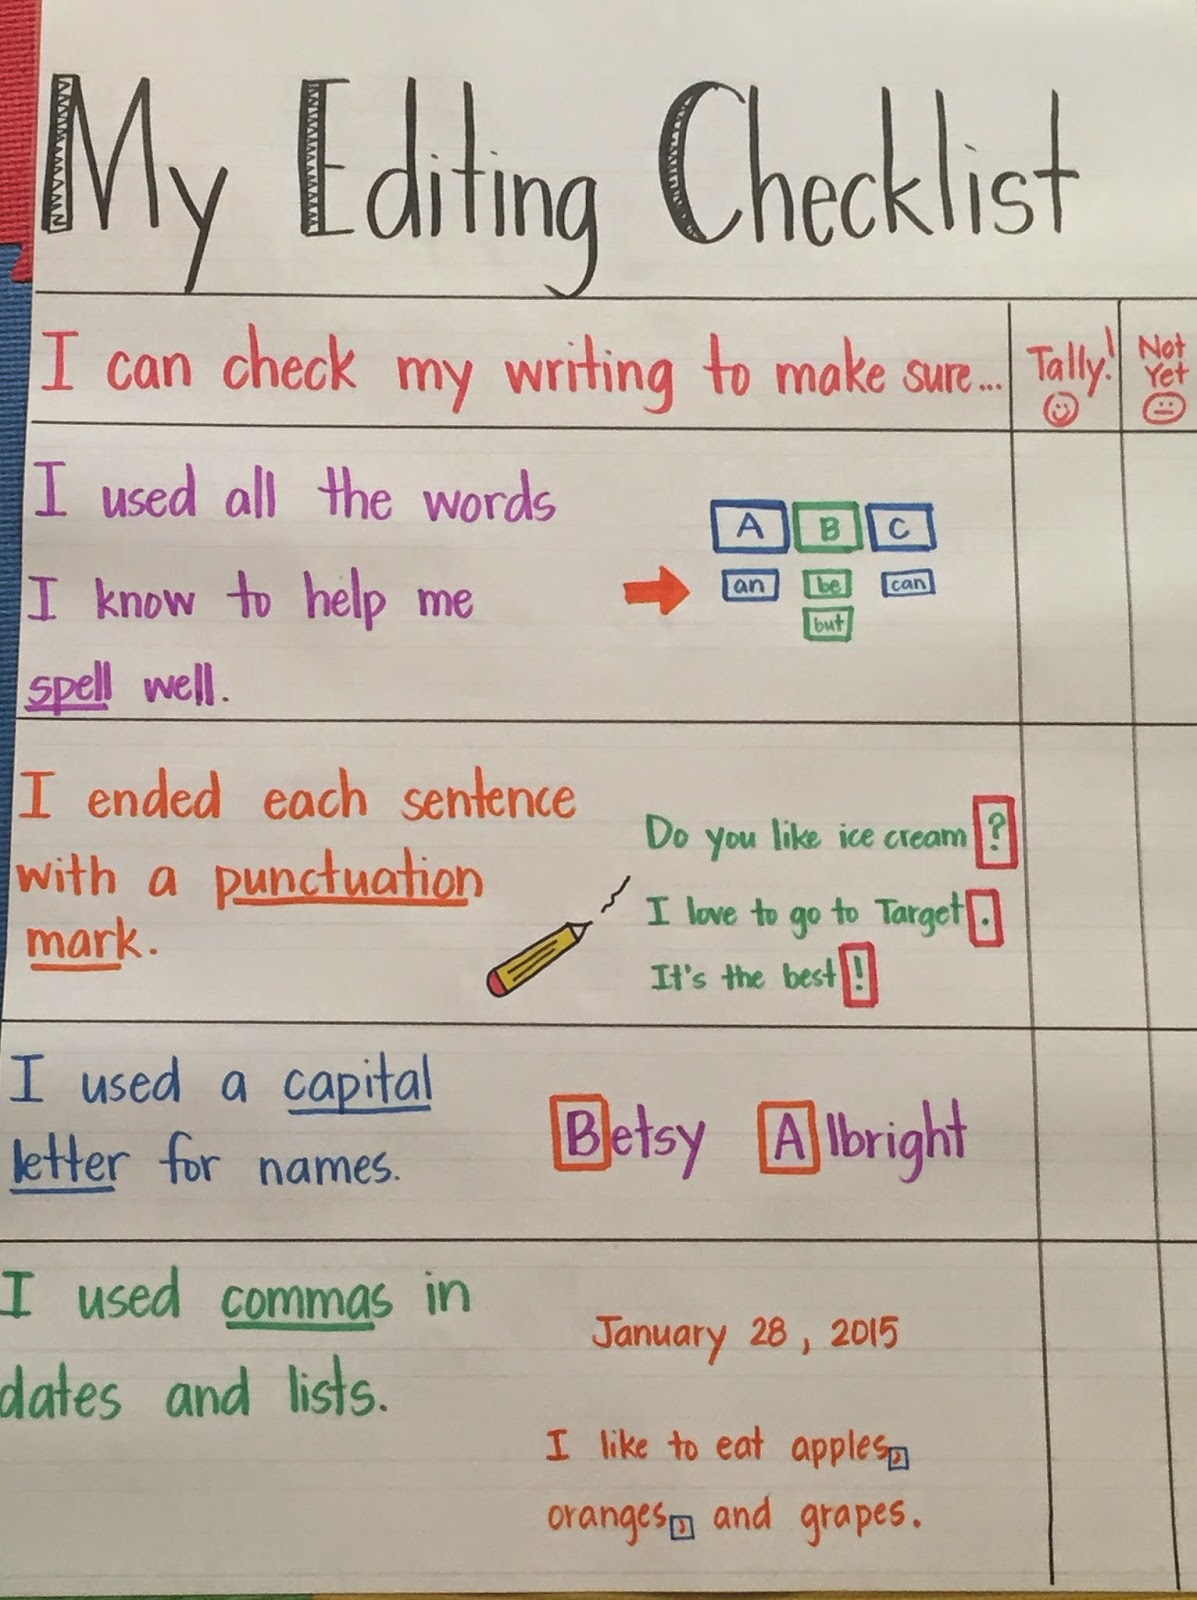 My Editing Checklist
I can check my writing to make sure...
Tally!
Not
Yet
I used all the words
I know to help me
spell well.
A B C
an be can
but
I ended each sentence
with a punctuation
mark.
Do you like ice cream?
I love to go to Target.
It's the best!
I used a capital
letter for names.
Betsy Albright
I used commas in
dates and lists.
January 28, 2015
I like to eat apples,
oranges, and grapes.